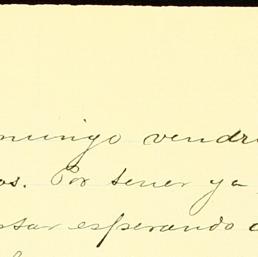 mingo vendr
os. Por tener ya
star esperando a